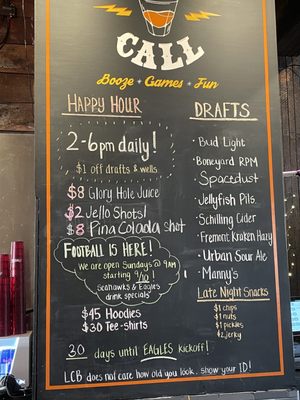 CALL
Booze + Games + Fun
Happy Hour
2-6pm daily!
$1 off drafts & wells
$8 Glory Hole Juice
$2 Jello Shots!
$8 Pina Colada shot
Football is Here!
We are open Sundays @ 9AM
starting 9/10!
Seahawks & Eagles
drink specials
$45 Hoodies
$30 Tee-shirts
30 days until EAGLES kickoff!
LCB does not care how old you look.. show your ID!
DRAFTS
· Bud Light
· Boneyard RPM
· Spacedust
· Jellyfish Pils
· Schilling Cider
· Fremont Kraken Hazy
· Urban Sour Ale
· Manny's
Late Night Snacks
$1 chips
$1 nuts
$1 pickles
$2 jerky